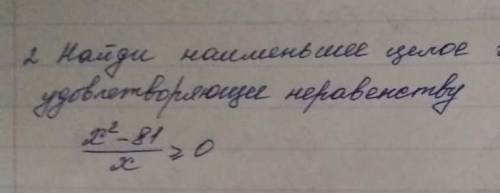 2 Найди наименьшее целое
удовлетворяющее неравенству
x² - 81
x
≥ 0